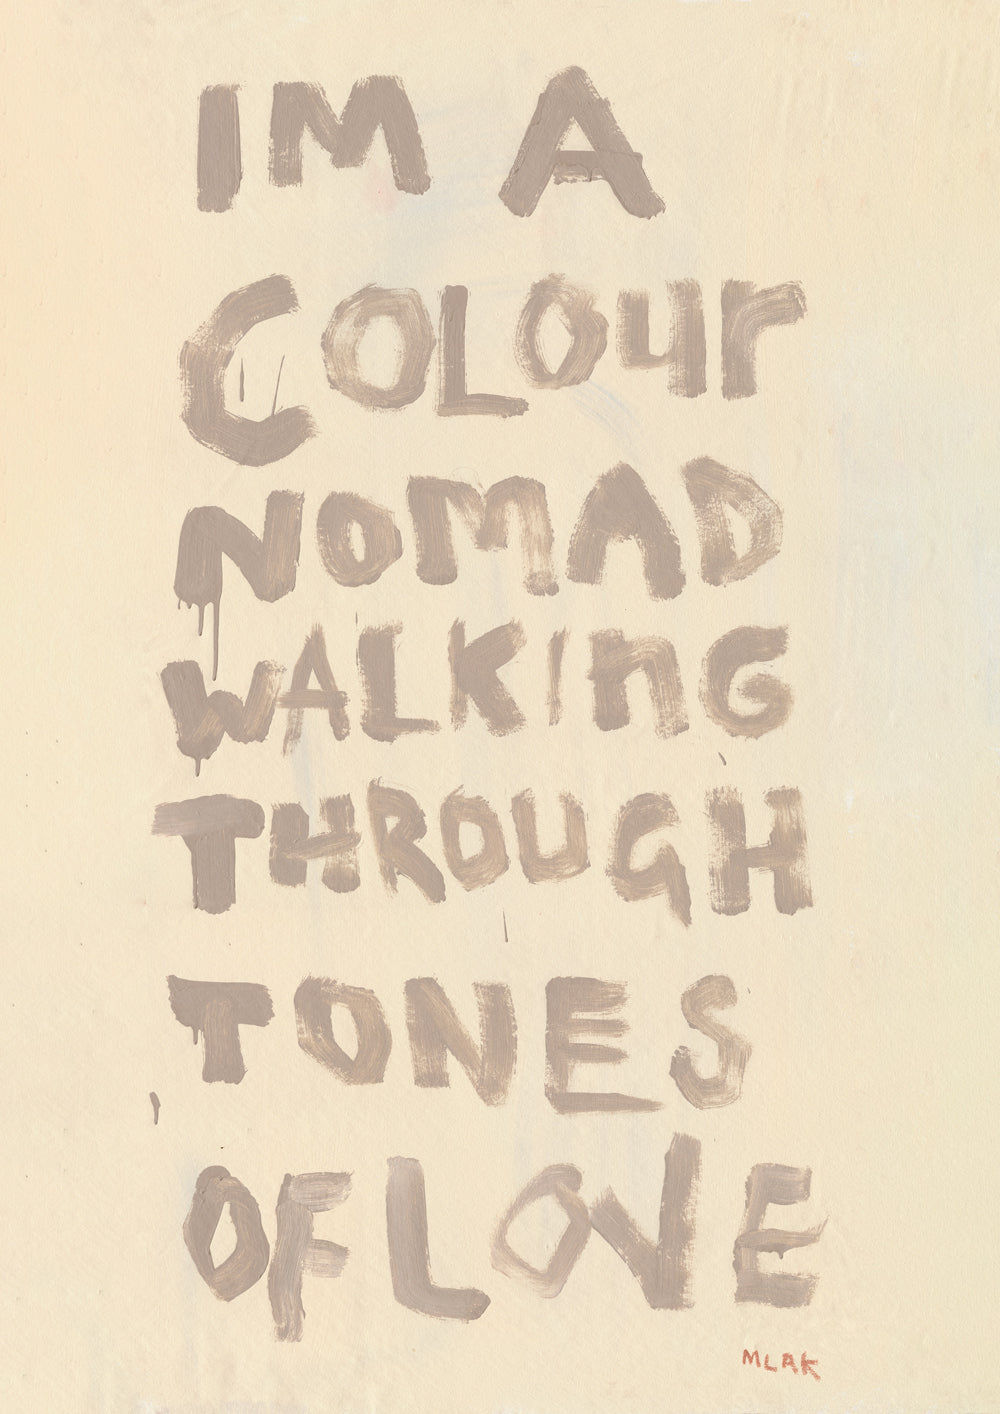 IM A
COLOUR
NOMAD
WALKING
THROUGH
TONES
OF LOVE
MLAK